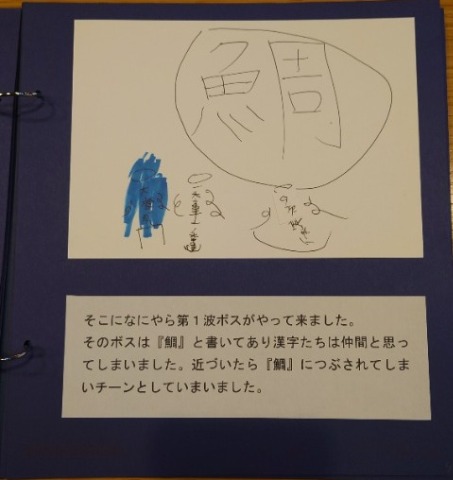 鯛
そこになにやら第1波ボスがやって来ました。
そのボスは『鯛』と書いてあり漢字たちは仲間と思っ
てしまいました。近づいたら『鯛』につぶされてしま
いチーンとしていまいました。